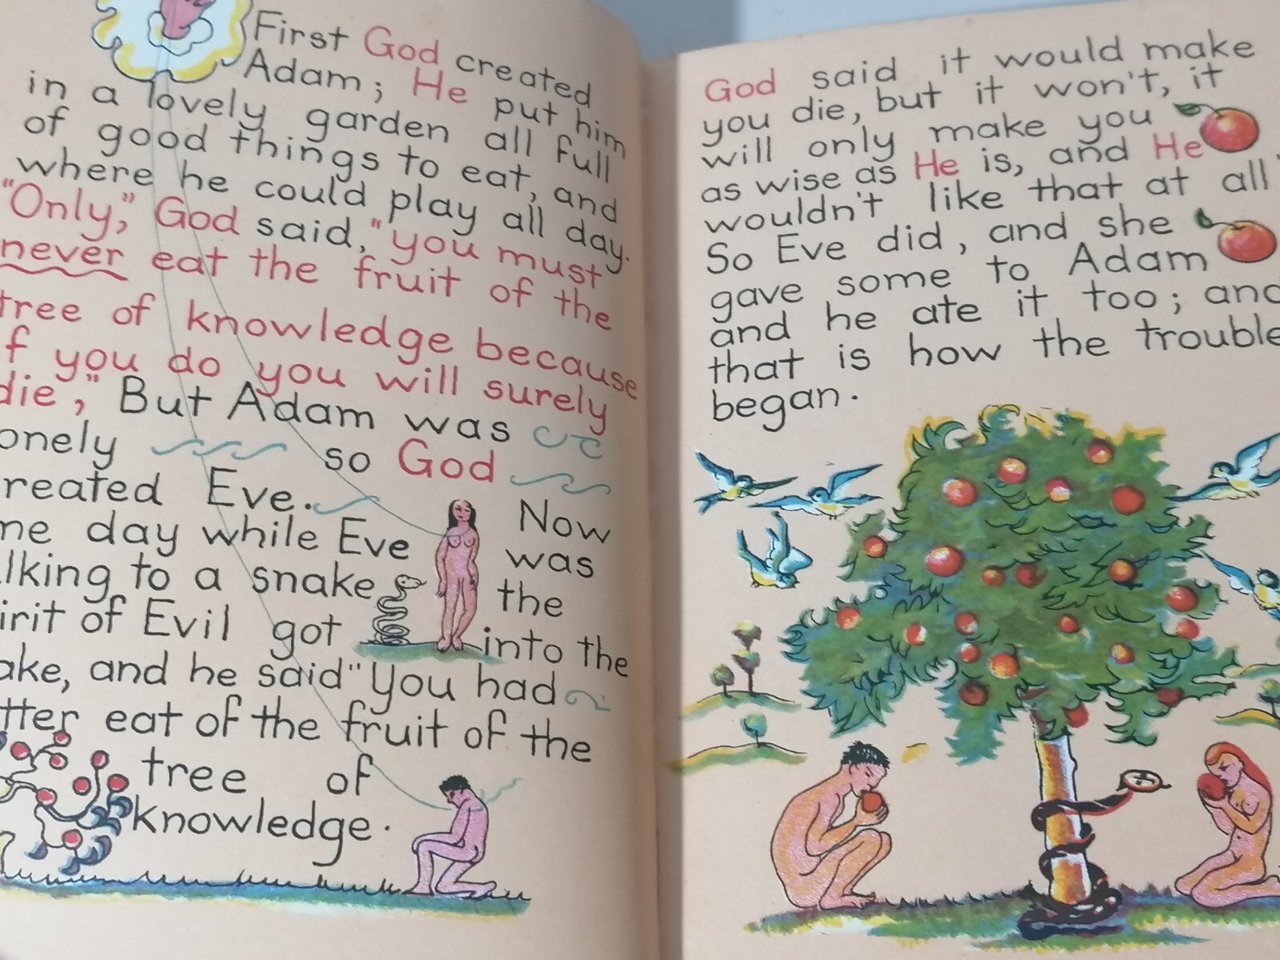 First God created
Adam; He put him
in a lovely garden all full
of good things to eat, and
where he could play all day.
"Only," God said, "you must
never eat the fruit of the
tree of knowledge because
f you do you will surely
die," But Adam was
onely so God
reated Eve. Now
ne day while Eve was
lking to a snake the
irit of Evil got into the
ake, and he said "You had
tter eat of the fruit of the
tree of
knowledge.
God said it would make
you die, but it won't, it
will only make you
as wise as He is, and He
wouldn't like that at all
So Eve did, and she
gave some to Adam
and he ate it too; and
that is how the trouble
began.